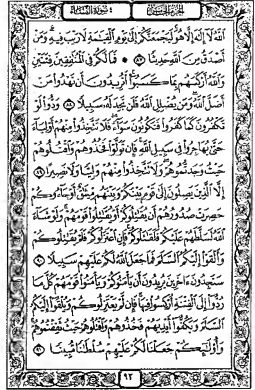 الجزء الخامس سورة النساء
ٱللَّهُ لَآ إِلَٰهَ إِلَّا هُوَ لَيَجْمَعَنَّكُمْ إِلَىٰ يَوْمِ ٱلْقِيَٰمَةِ لَا رَيْبَ فِيهِ وَمَنْ
أَصْدَقُ مِنَ ٱللَّهِ حَدِيثًا ٨٧ ۞ فَمَا لَكُمْ فِى ٱلْمُنَٰفِقِينَ فِئَتَيْنِ
وَٱللَّهُ أَرْكَسَهُم بِمَا كَسَبُوٓا۟ أَتُرِيدُونَ أَن تَهْدُوا۟ مَنْ
أَضَلَّ ٱللَّهُ وَمَن يُضْلِلِ ٱللَّهُ فَلَن تَجِدَ لَهُۥ سَبِيلًا ٨٨ وَدُّوا۟ لَوْ
تَكْفُرُونَ كَمَا كَفَرُوا۟ فَتَكُونُونَ سَوَآءً فَلَا تَتَّخِذُوا۟ مِنْهُمْ أَوْلِيَآءَ
حَتَّىٰ يُهَاجِرُوا۟ فِى سَبِيلِ ٱللَّهِ فَإِن تَوَلَّوْا۟ فَخُذُوهُمْ وَٱقْتُلُوهُمْ
حَيْثُ وَجَدتُّمُوهُمْ وَلَا تَتَّخِذُوا۟ مِنْهُمْ وَلِيًّا وَلَا نَصِيرًا ٨٩
إِلَّا ٱلَّذِينَ يَصِلُونَ إِلَىٰ قَوْمٍۭ بَيْنَكُمْ وَبَيْنَهُم مِّيثَٰقٌ أَوْ جَآءُوكُمْ
حَصِرَتْ صُدُورُهُمْ أَن يُقَٰتِلُوكُمْ أَوْ يُقَٰتِلُوا۟ قَوْمَهُمْ وَلَوْ شَآءَ
ٱللَّهُ لَسَلَّطَهُمْ عَلَيْكُمْ فَلَقَٰتَلُوكُمْ فَإِنِ ٱعْتَزَلُوكُمْ فَلَمْ يُقَٰتِلُوكُمْ
وَأَلْقَوْا۟ إِلَيْكُمُ ٱلسَّلَمَ فَمَا جَعَلَ ٱللَّهُ لَكُمْ عَلَيْهِمْ سَبِيلًا ٩٠
سَتَجِدُونَ ءَاخَرِينَ يُرِيدُونَ أَن يَأْمَنُوكُمْ وَيَأْمَنُوا۟ قَوْمَهُمْ كُلَّ مَا
رُدُّوٓا۟ إِلَى ٱلْفِتْنَةِ أُرْكِسُوا۟ فِيهَا فَإِن لَّمْ يَعْتَزِلُوكُمْ وَيُلْقُوٓا۟ إِلَيْكُمُ
ٱلسَّلَمَ وَيَكُفُّوٓا۟ أَيْدِيَهُمْ فَخُذُوهُمْ وَٱقْتُلُوهُمْ حَيْثُ ثَقِفْتُمُوهُمْ
وَأُو۟لَٰٓئِكُمْ جَعَلْنَا لَكُمْ عَلَيْهِمْ سُلْطَٰنًا مُّبِينًا ٩١
٩٢